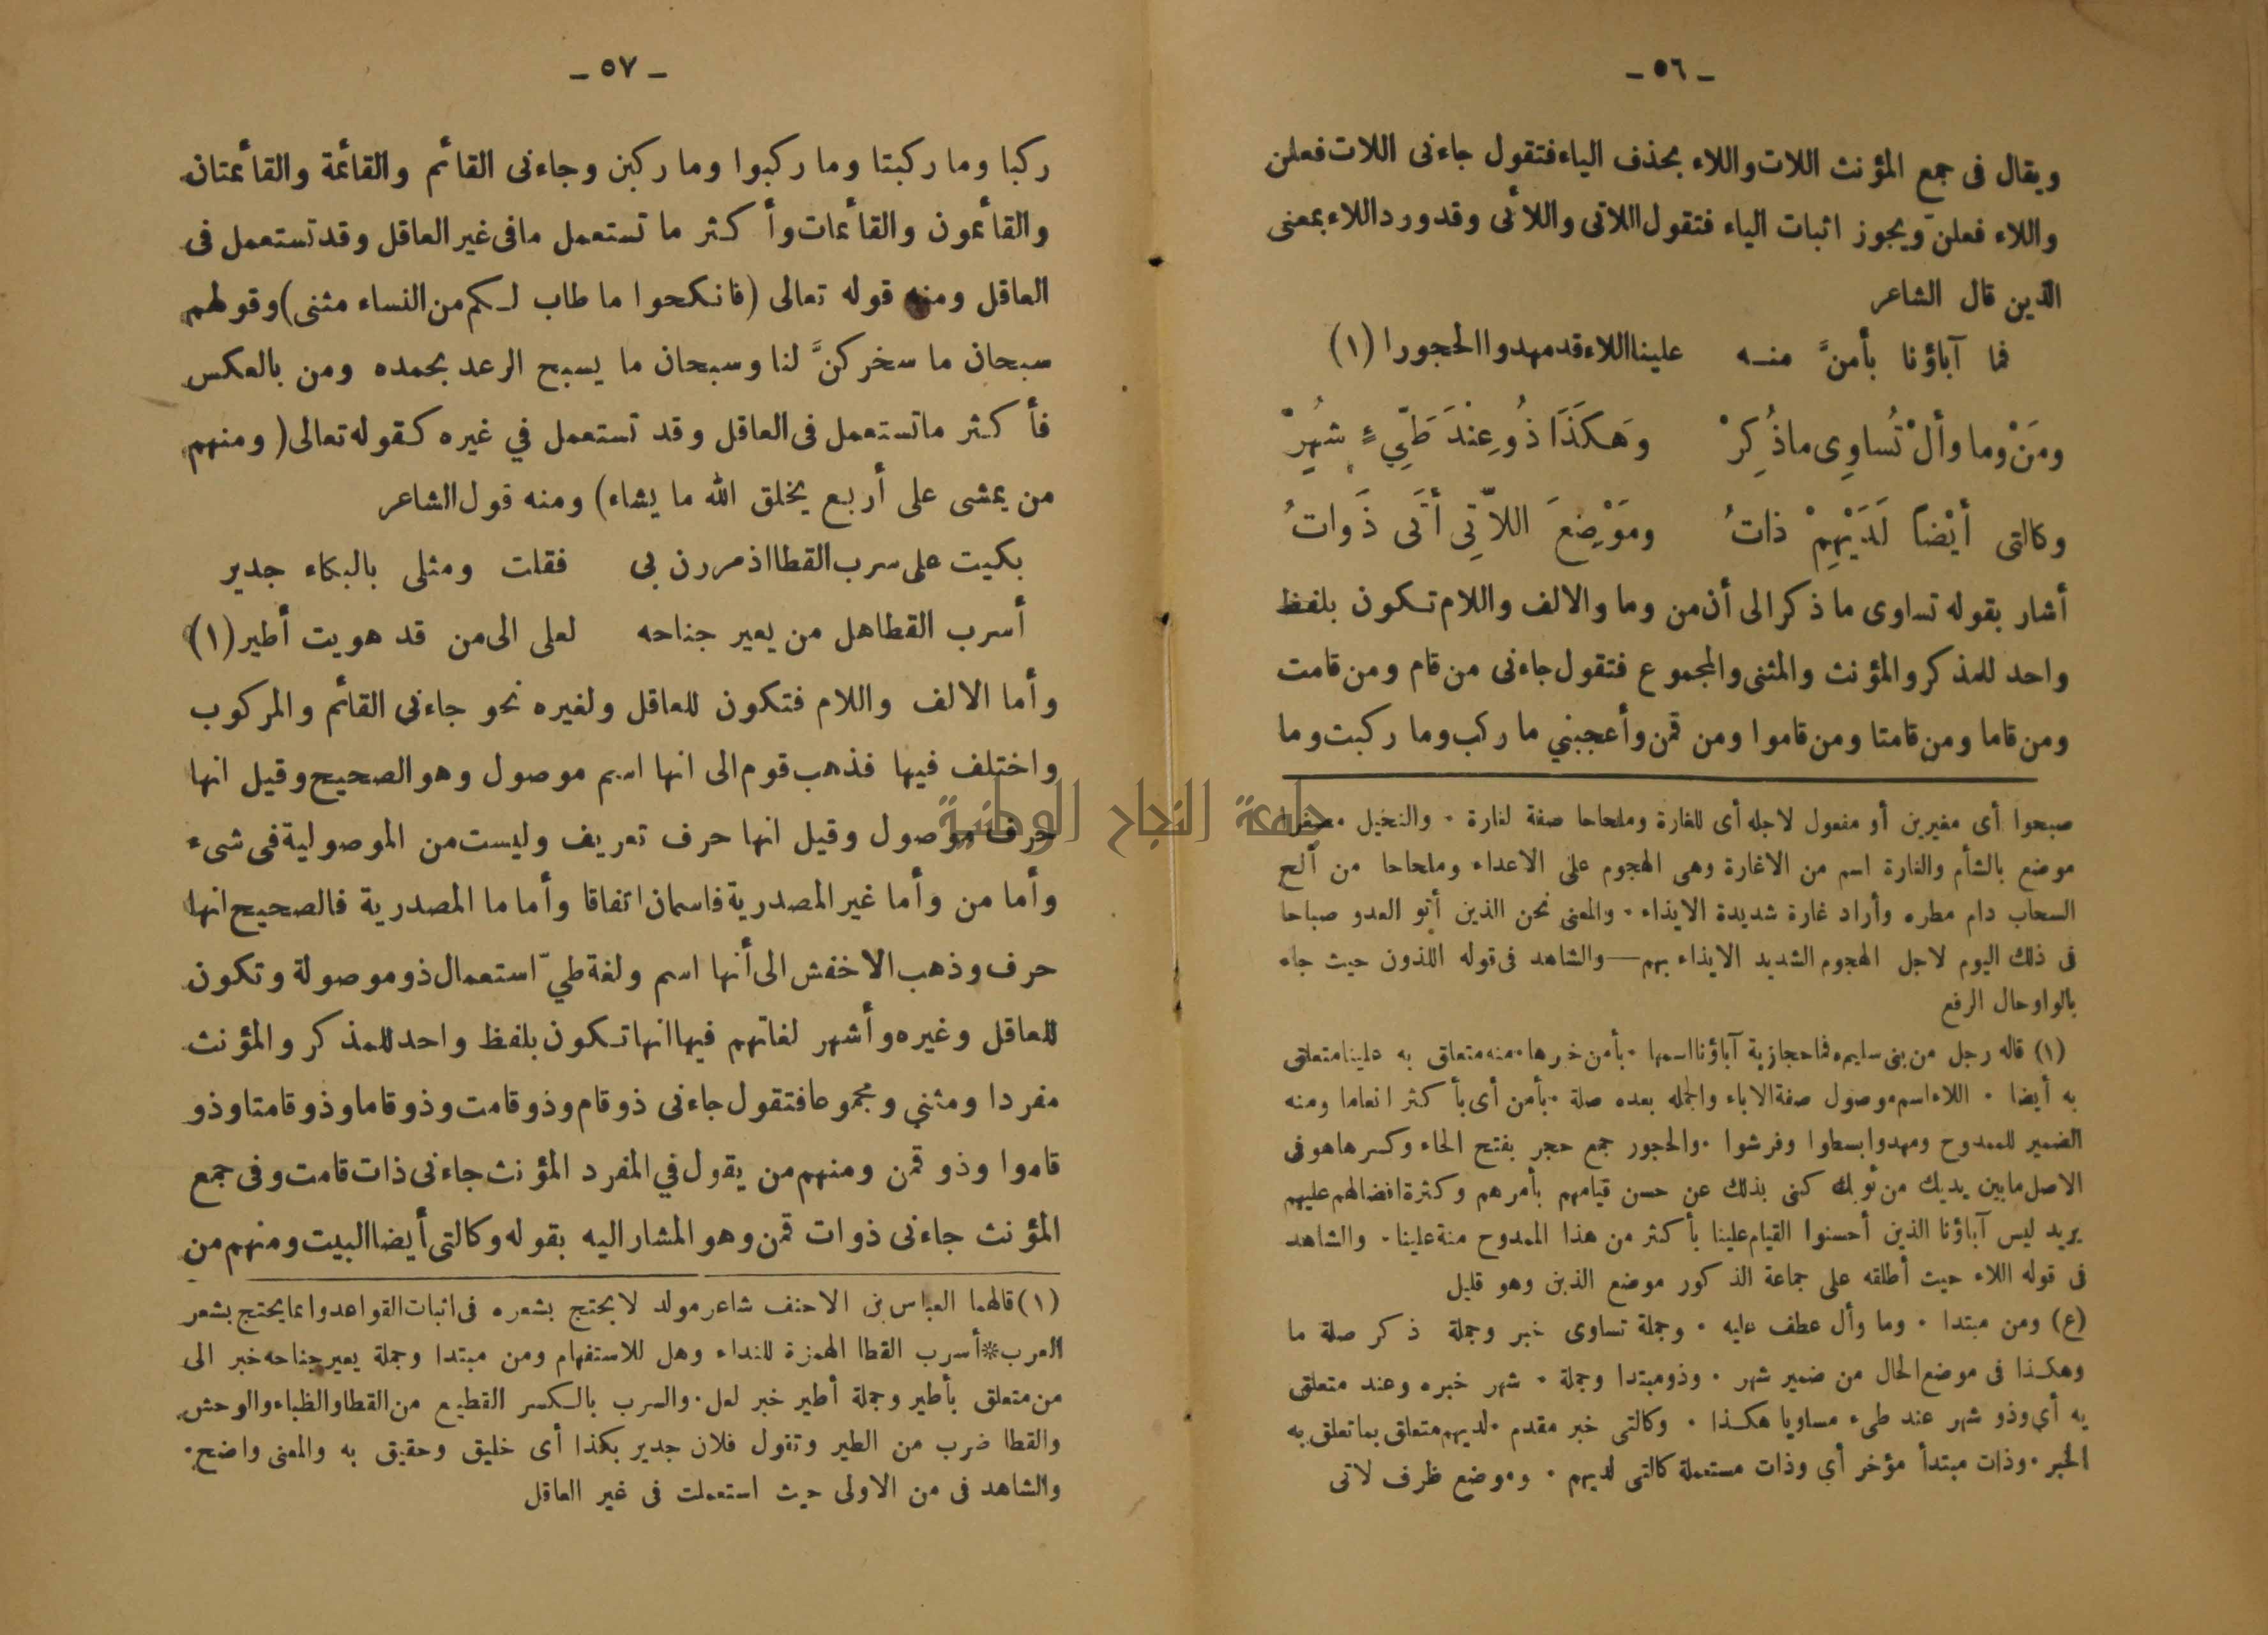 ـ ٥٦ ـ
ويقال فى جمع المؤنث اللات واللاء بحذف الياء فتقول جاءنى اللات فعلن
واللاء فعلن ويجوز اثبات الياء فتقول اللاتى واللائى وقد ورد اللاء بمعنى
الذين قال الشاعر
فما آباؤنا بأمنَّ منه علينا اللاء قد مهدوا الحجورا (١)
ومَنْ وما وألْ تُساوِى ماذُكِرْ وَهكَذَا ذُو عِنْدَ طَيِّءٍ شُهِرْ
وكالتى أيْضاً لَدَيْهِمْ ذاتُ ومَوْضِعَ اللاَّتِى أتَى ذَواتُ
أشار بقوله تساوى ما ذكر الى أن من وما والالف واللام تكون بلفظ
واحد للمذكر والمؤنث والمثنى والمجموع فتقول جاءنى من قام ومن قامت
ومن قاما ومن قامتا ومن قاموا ومن قمن وأعجبني ما ركب وما ركبت وما
صبحوا أى مغيرين أو مفعول لاجله أى للغارة وملحاحا صفة لغارة ٠ والنخيل مصغرا
موضع بالشأم والغارة اسم من الاغارة وهى الهجوم على الاعداء وملحاحا من ألح
السحاب دام مطره وأراد غارة شديدة الايذاء ٠ والمعنى نحن الذين أتو العدو صباحا
فى ذلك اليوم لاجل الهجوم الشديد الايذاء بهم — والشاهد فى قوله اللذون حيث جاء
بالواو حال الرفع
(١) قاله رجل من بنى سليم ٠ فما حجازية آباؤنا اسمها ٠ بأمن خبرها ٠ منه متعلق به علينا متعلق
به أيضا ٠ اللاء اسم موصول صفة الاباء والجمله بعده صلة ٠ بأمن أى بأكثر انعاما ومنه
الضمير للممدوح ومهدوا بسطوا وفرشوا ٠ والحجور جمع حجر بفتح الحاء وكسرها هو فى
الاصل ما بين يديك من ثوبك كنى بذلك عن حسن قيامهم بأمرهم وكثرة افضالهم عليهم
يريد ليس آباؤنا الذين أحسنوا القيام علينا بأكثر من هذا الممدوح منة علينا ٠ والشاهد
فى قوله اللاء حيث أطلقه على جماعة الذكور موضع الذين وهو قليل
(ع) ومن مبتدا ٠ وما وأل عطف عليه ٠ وجملة تساوى خبر وجملة ذكر صلة ما
وهكذا فى موضع الحال من ضمير شهر ٠ وذو مبتدا وجملة ٠ شهر خبره وعند متعلق
به أي وذو شهر عند طىء مساويا هكذا ٠ وكالتى خبر مقدم ٠ لديهم متعلق بما تعلق به
الخبر ٠ وذات مبتدأ مؤخر أي وذات مستعملة كالتى لديهم ٠ وموضع ظرف لاتى
ـ ٥٧ ـ
ركبا وما ركبتا وما ركبوا وما ركبن وجاءنى القائم والقائمة والقائمتان
والقائمون والقائمات وأكثر ما تستعمل ما فى غير العاقل وقد تستعمل فى
العاقل ومنه قوله تعالى (فانكحوا ما طاب لكم من النساء مثنى) وقولهم
سبحان ما سخركنَّ لنا وسبحان ما يسبح الرعد بحمده ومن بالعكس
فأكثر ما تستعمل فى العاقل وقد تستعمل في غيره كقوله تعالى (ومنهم
من يمشى على أربع يخلق الله ما يشاء) ومنه قول الشاعر
بكيت على سرب القطا اذ مررن بى فقلت ومثلى بالبكاء جدير
أسرب القطا هل من يعير جناحه لعلى الى من قد هويت أطير (١)
وأما الالف واللام فتكون للعاقل ولغيره نحو جاءنى القائم والمركوب
واختلف فيها فذهب قوم الى انها اسم موصول وهو الصحيح وقيل انها
حرف موصول وقيل انها حرف تعريف وليست من الموصولية فى شىء
وأما من وأما غير المصدرية فاسمان اتفاقا وأما ما المصدرية فالصحيح انها
حرف وذهب الاخفش الى أنها اسم ولغة طيّ استعمال ذو موصولة وتكون
للعاقل وغيره وأشهر لغاتهم فيها انها تكون بلفظ واحد للمذكر والمؤنث
مفردا ومثني ومجموعا فتقول جاءنى ذو قام وذو قامت وذو قاما وذو قامتا وذو
قاموا وذو قمن ومنهم من يقول في المفرد المؤنث جاءنى ذات قامت وفى جمع
المؤنث جاءنى ذوات قمن وهو المشار اليه بقوله وكالتى أيضا البيت ومنهم من
(١) قالهما العباس بن الاحنف شاعر مولد لا يحتج بشعره فى اثبات القواعد وانما يحتج بشعر
العرب * أسرب القطا الهمزة للنداء وهل للاستفهام ومن مبتدا وجملة يعير جناحه خبر الى
من متعلق بأطير وجملة أطير خبر لعل ٠ والسرب بالكسر القطيع من القطا والظباء والوحش
والقطا ضرب من الطير وتقول فلان جدير بكذا أى خليق وحقيق به والمعنى واضح ٠
والشاهد فى من الاولى حيث استعملت فى غير العاقل
جامعة النجاح الوطنية